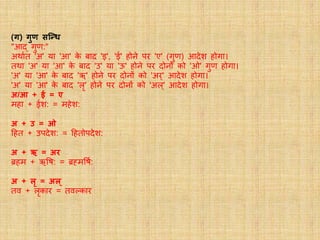 (ग) गुण सन्धि
"आद् गुण:"
अर्थात 'अ' या 'आ' के बाद 'इ', 'ई' होने पर 'ए' (गुण) आदेश होगा।
तथा 'अ' या 'आ' के बाद 'उ' या 'ऊ' होने पर दोनों को 'ओ' गुण होगा।
'अ' या 'आ' के बाद 'ऋ' होने पर दोनों को 'अर्' आदेश होगा।
'अ' या 'आ' के बाद 'लृ' होने पर दोनों को 'अल्' आदेश होगा।
अ/आ + ई = ए
महा + ईश: = महेश:
अ + उ = ओ
हित + उपदेश: = हितोपदेश:
अ + ऋ = अर
ब्रहम + ऋषि: = ब्रहमर्षि:
अ + लृ = अल्
तव + लृकार = तवल्कार